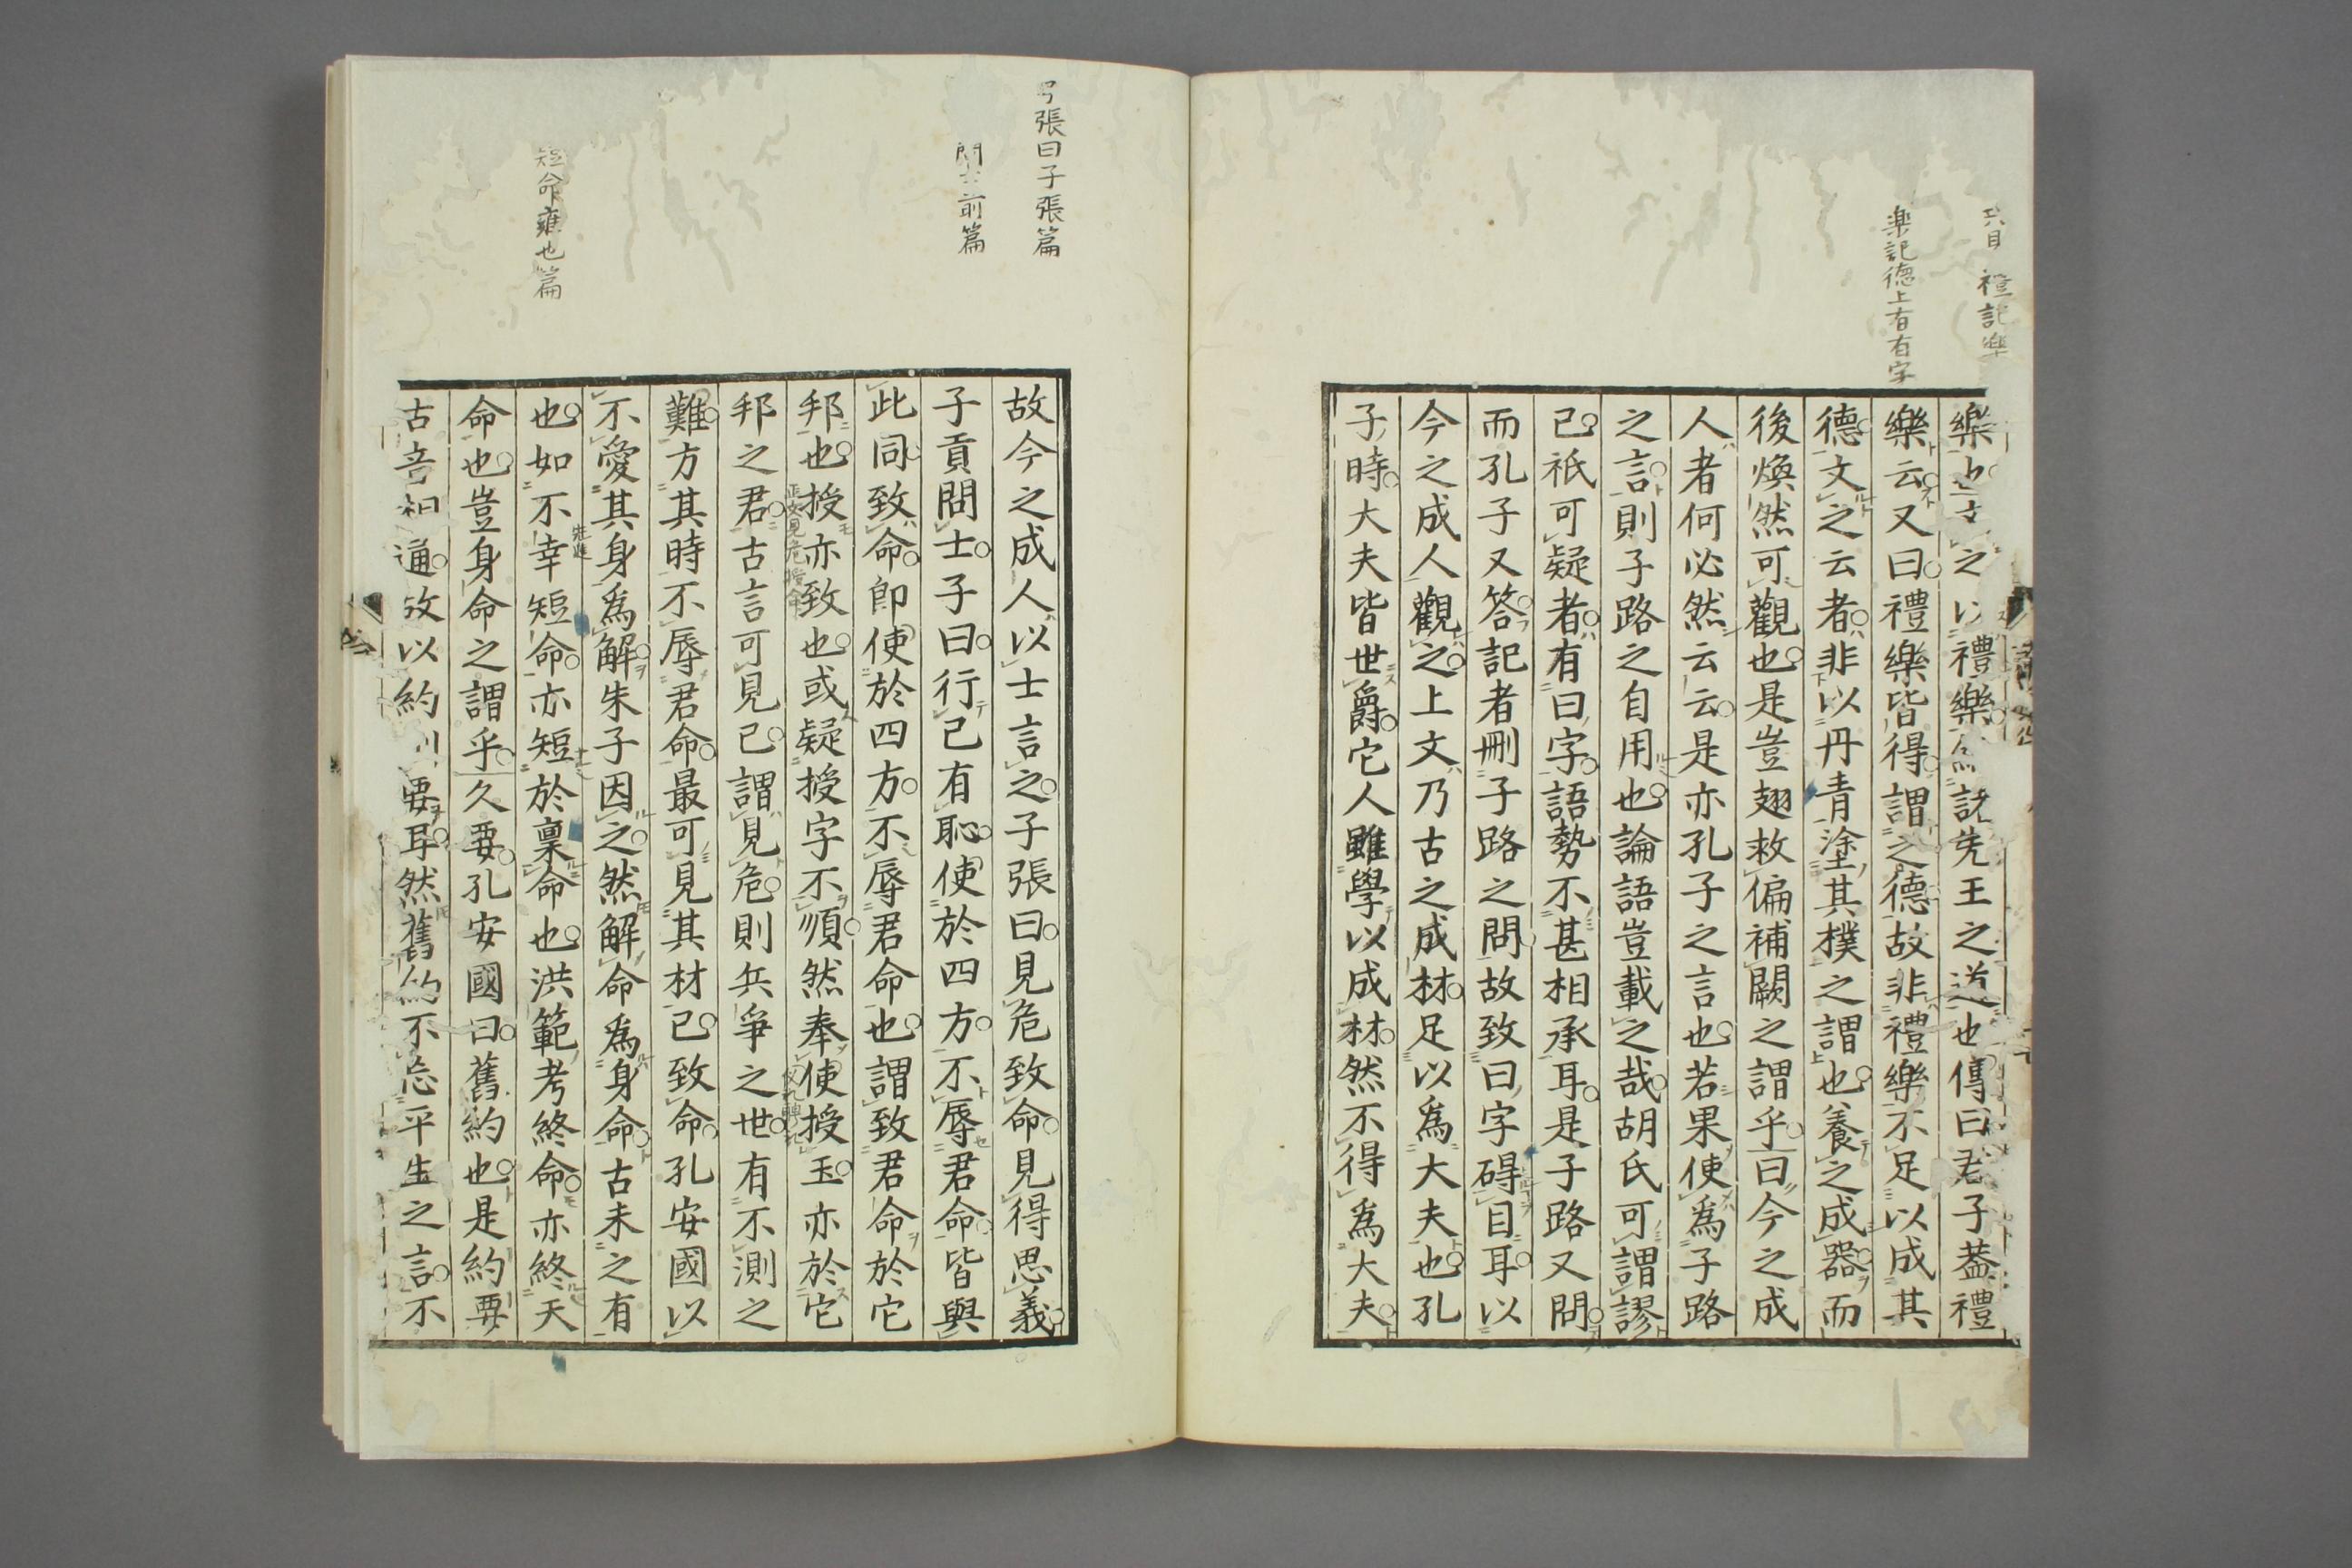 樂記德上有有字
樂 之以禮樂 說先王之道也傳曰君子蓋禮
樂云又曰禮樂皆得謂之德故非禮樂不足以成其
德文之云者非以丹青塗其樸之謂也養之成器而
後煥然可觀也是豈翅救偏補闕之謂乎曰今之成
人者何必然云云是亦孔子之言也若果使爲子路
之言則子路之自用也論語豈載之哉胡氏可謂謬
已祇可疑者有曰字語勢不甚相承耳是子路又問
而孔子又答記者刪子路之問故致曰字碍目耳以
今之成人觀之上文乃古之成材足以爲大夫也孔
子時大夫皆世爵它人雖學以成材然不得爲大夫
張曰子張篇
問士前篇
短命雍也篇
故今之成人以士言之子張曰見危致命見得思義
子貢問士子曰行己有恥使於四方不辱君命皆與
此同致命卽使於四方不辱君命也謂致君命於它
邦也授亦致也或疑授字不順然奉使授玉亦於它
邦之君古言可見已謂見危則兵爭之世有不測之
難方其時不辱君命最可見其材已致命孔安國以
不愛其身爲解朱子因之然解命爲身命古未之有
也如不幸短命亦短於稟命也洪範考終命亦終天
命也豈身命之謂乎久要孔安國曰舊約也是約要
古音相通故以約 要耳然舊約不忘平生之言不